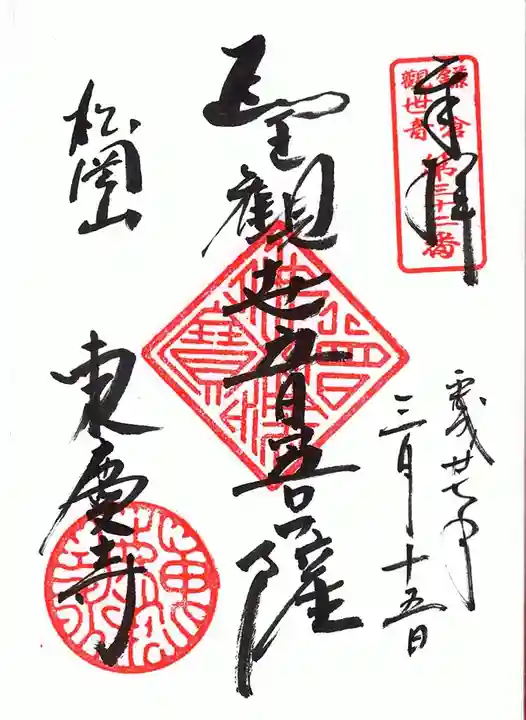 奉拝
鎌倉
觀世音
第三十二番
平成廿七年
三月十五日
聖觀世音菩薩
松岡山
東慶寺